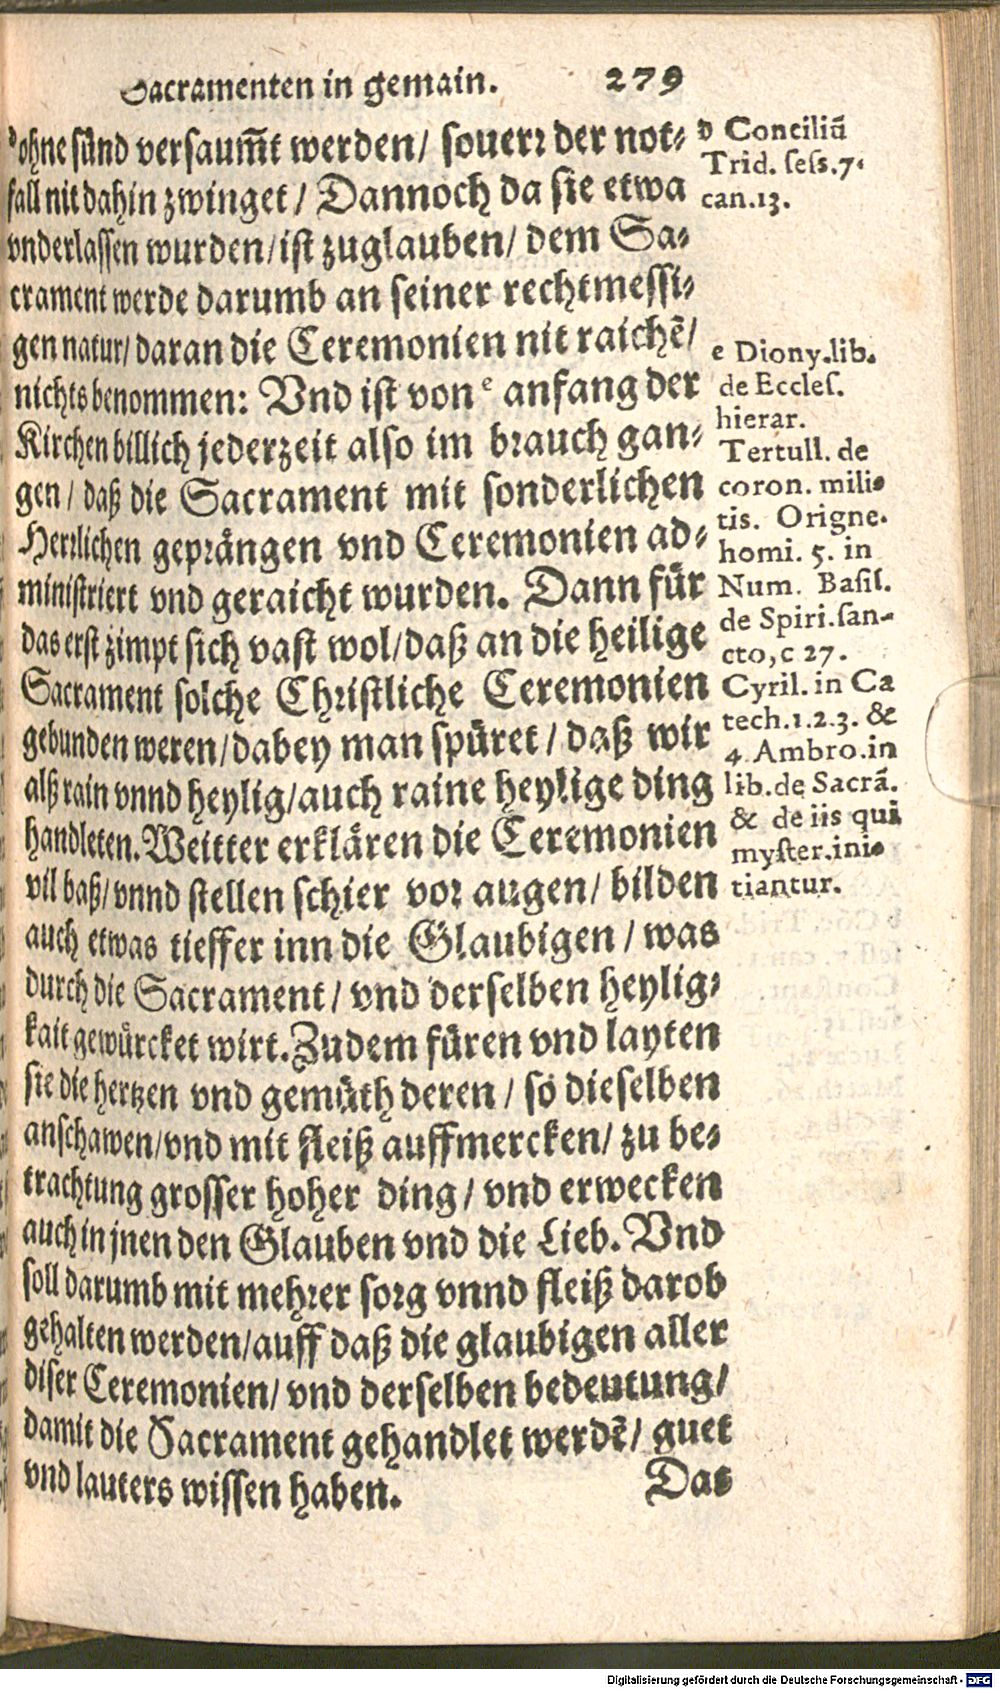 Sacramenten in gemain. 279
ᵈohne sünd versaum̄t werden/ souerr der not⸗
fall nit dahin zwinget/ Dannoch da sie etwa
vnderlassen wurden/ ist zuglauben/ dem Sa⸗
crament werde darumb an seiner rechtmessi⸗
gen natur/ daran die Ceremonien nit raichẽ/
nichts benommen: Vnd ist von ᵉ anfang der
Kirchen billich jederzeit also im brauch gan⸗
gen/ daß die Sacrament mit sonderlichen
Herrlichen geprängen vnd Ceremonien ad⸗
ministriert vnd geraicht wurden. Dann für
das erst zimpt sich vast wol/ daß an die heilige
Sacrament solche Christliche Ceremonien
gebunden weren/ dabey man spüret/ daß wir
alß rain vnnd heylig/ auch raine heylige ding
handleten. Weitter erklären die Ceremonien
vil baß/ vnnd stellen schier vor augen/ bilden
auch etwas tieffer inn die Glaubigen/ was
durch die Sacrament/ vnd derselben heylig⸗
kait gewürcket wirt. Zudem füren vnd layten
sie die hertzen vnd gemüth deren/ so dieselben
anschawen/ vnd mit fleiß auffmercken/ zu be⸗
trachtung grosser hoher ding/ vnd erwecken
auch in jnen den Glauben vnd die Lieb. Vnd
soll darumb mit mehrer sorg vnnd fleiß darob
gehalten werden/ auff daß die glaubigen aller
diser Ceremonien/ vnd derselben bedeutung/
damit die Sacrament gehandlet werdẽ/ guet
vnd lauters wissen haben.
Das
d Conciliũ
Trid. sess.7.
can.13.
e Diony.lib.
de Eccles.
hierar.
Tertull. de
coron. mili⸗
tis. Origne.
homi. 5. in
Num. Basil.
de Spiri.san-
cto,c 27.
Cyril. in Ca
tech.1.2.3. &
4 Ambro.in
lib.de Sacrã.
& de iis qui
myster.ini⸗
tiantur.
Digitalisierung gefördert durch die Deutsche Forschungsgemeinschaft - DFG